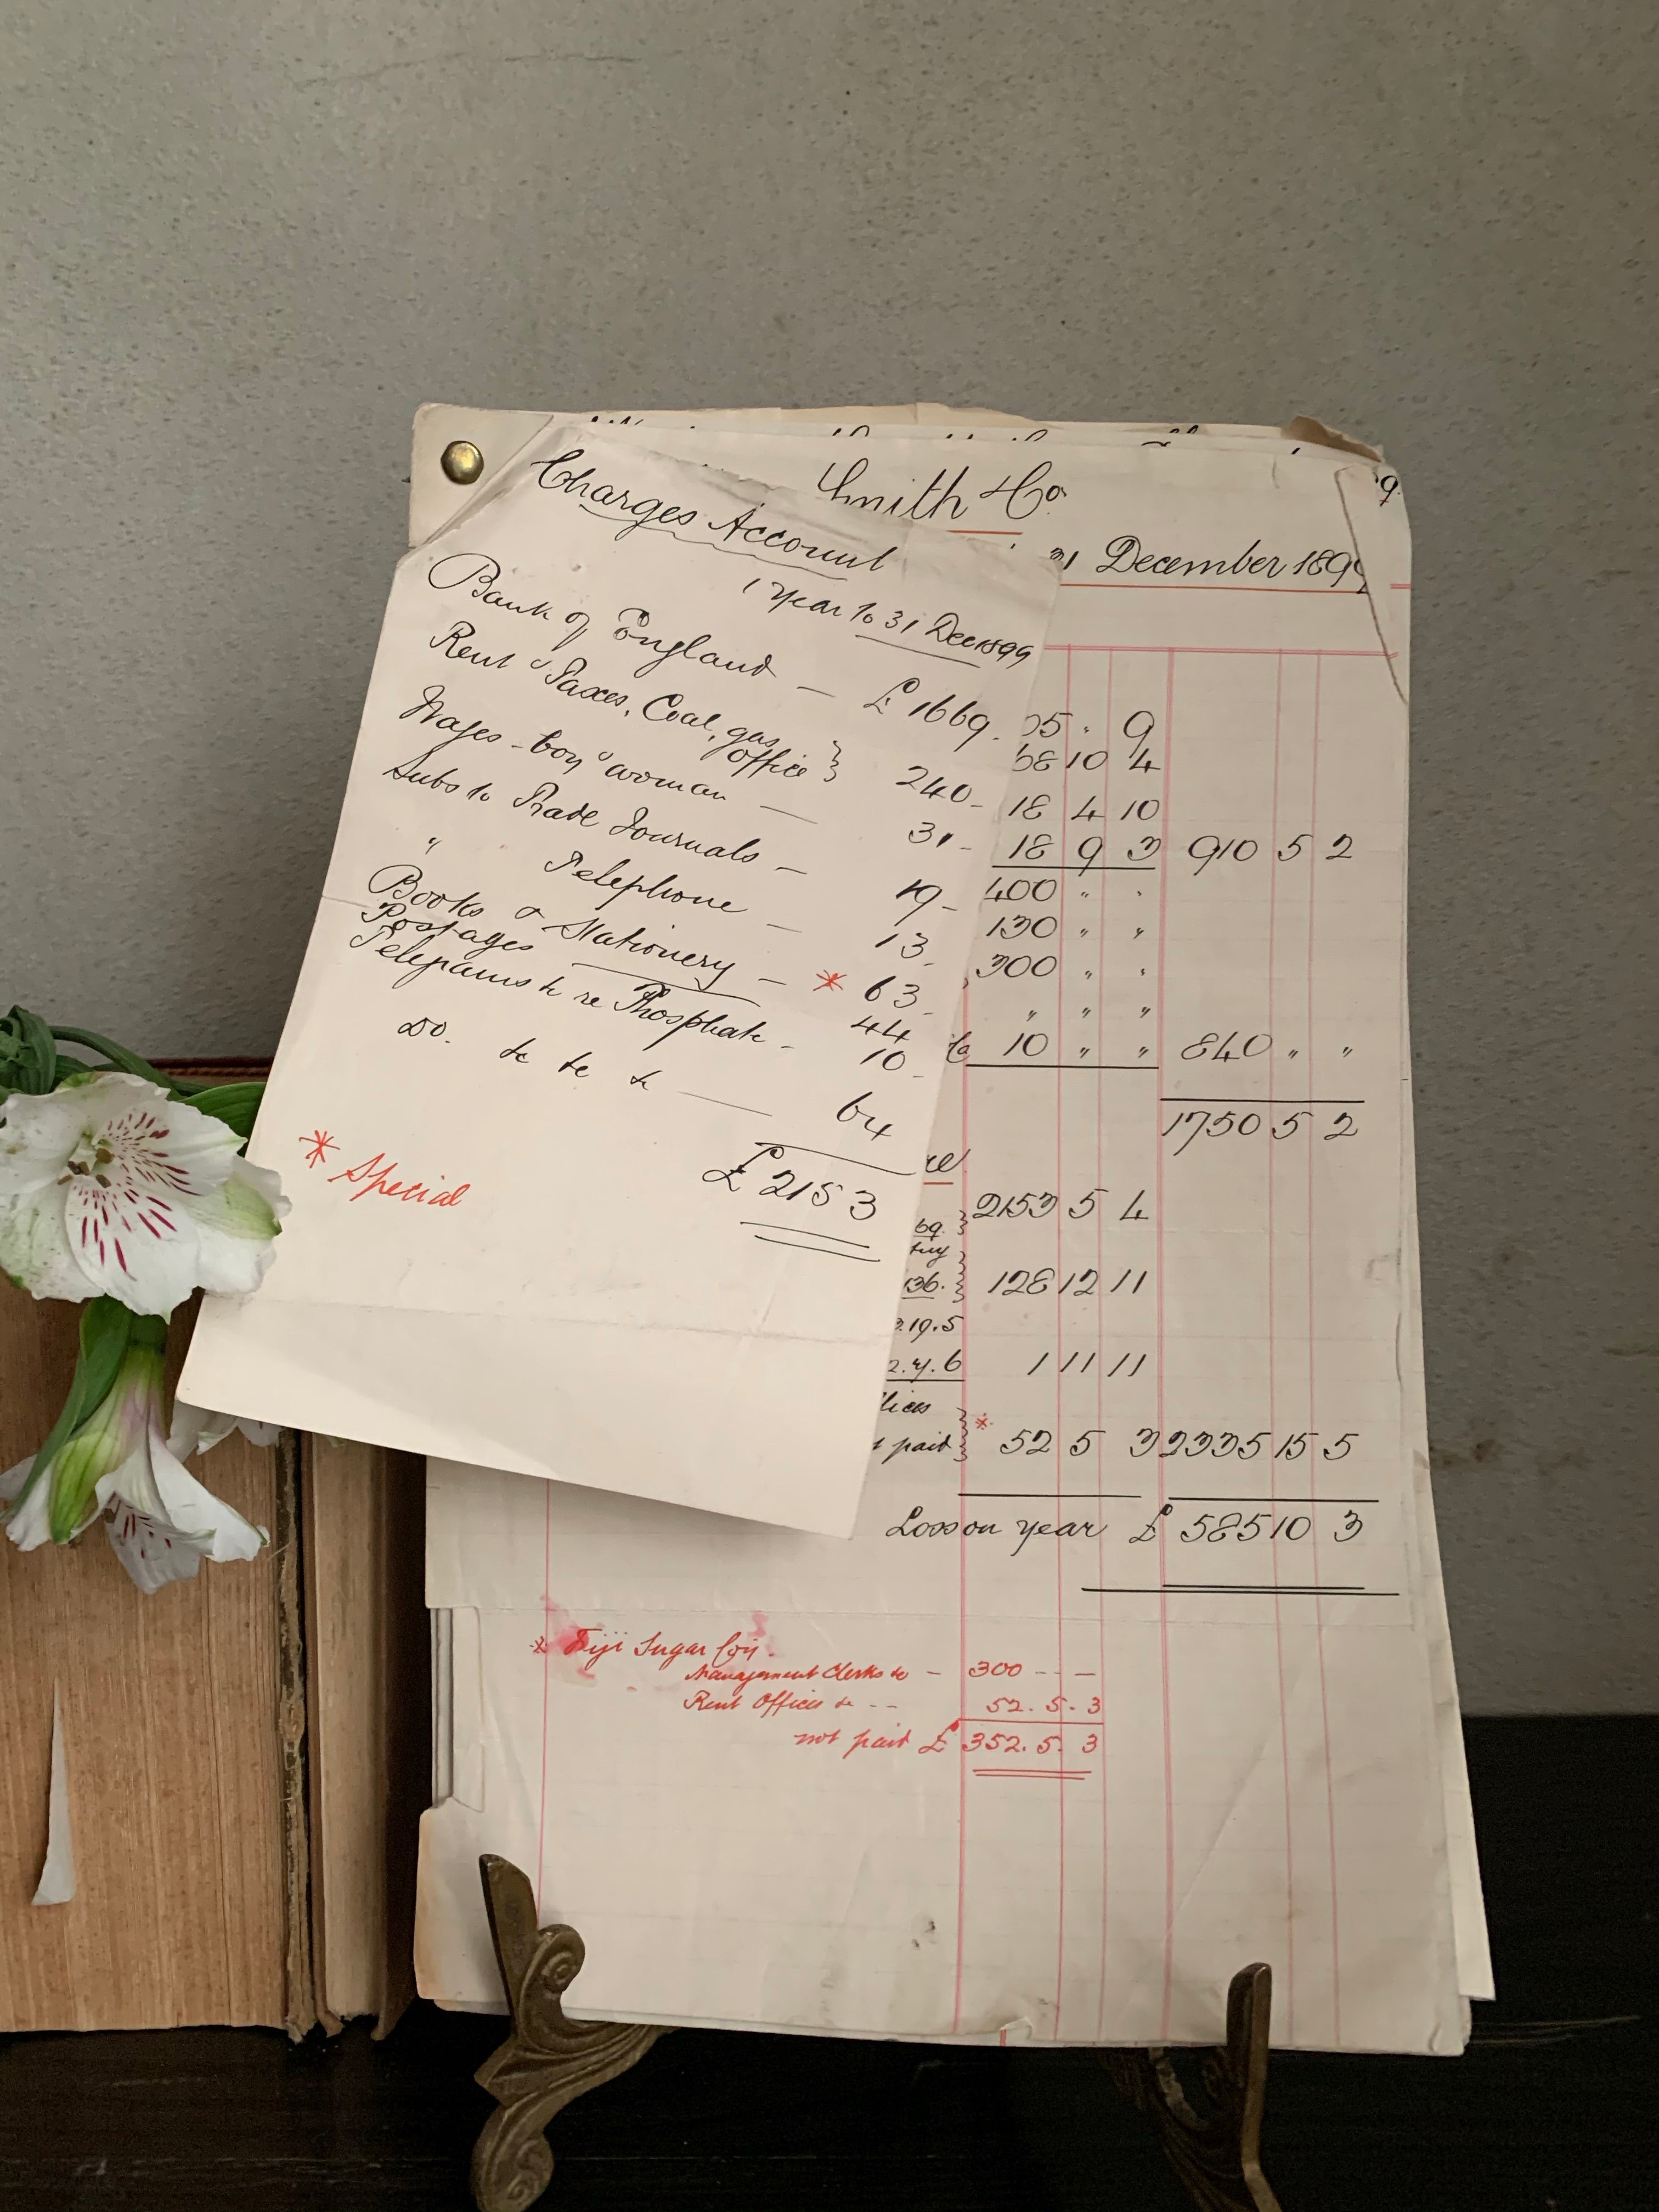 Charges Account
1 Year to 31 Dec 1899
Bank of England — £ 1669.
Rent & Taxes, Coal, gas,
office } 240 -
Wages - boy & woman — 31 -
Subs to Trade Journals — 19 -
" Telephone — 13 -
Books & Stationery — * 63 -
Postages 44
Telegrams &c re Phosphate - 10 -
Do. &c &c &c — 64
£ 2153
* Special
Smith & Co.
31 December 1899
05 " 9
68 10 4
18 4 10
18 9 3 910 5 2
400 " "
130 " "
300 " "
" " "
10 " " 840 " "
1750 5 2
2153 5 4
69. }
136. } 128 12 11
.19.5
2.7.6 1 11 11
paid } * 52 5 3 2335 15 5
Loss on year £ 585 10 3
* Fiji Sugar Coy.
Management Clerks &c - 300 - - —
Rent Offices &c - - 52. 5. 3
not paid £ 352. 5. 3